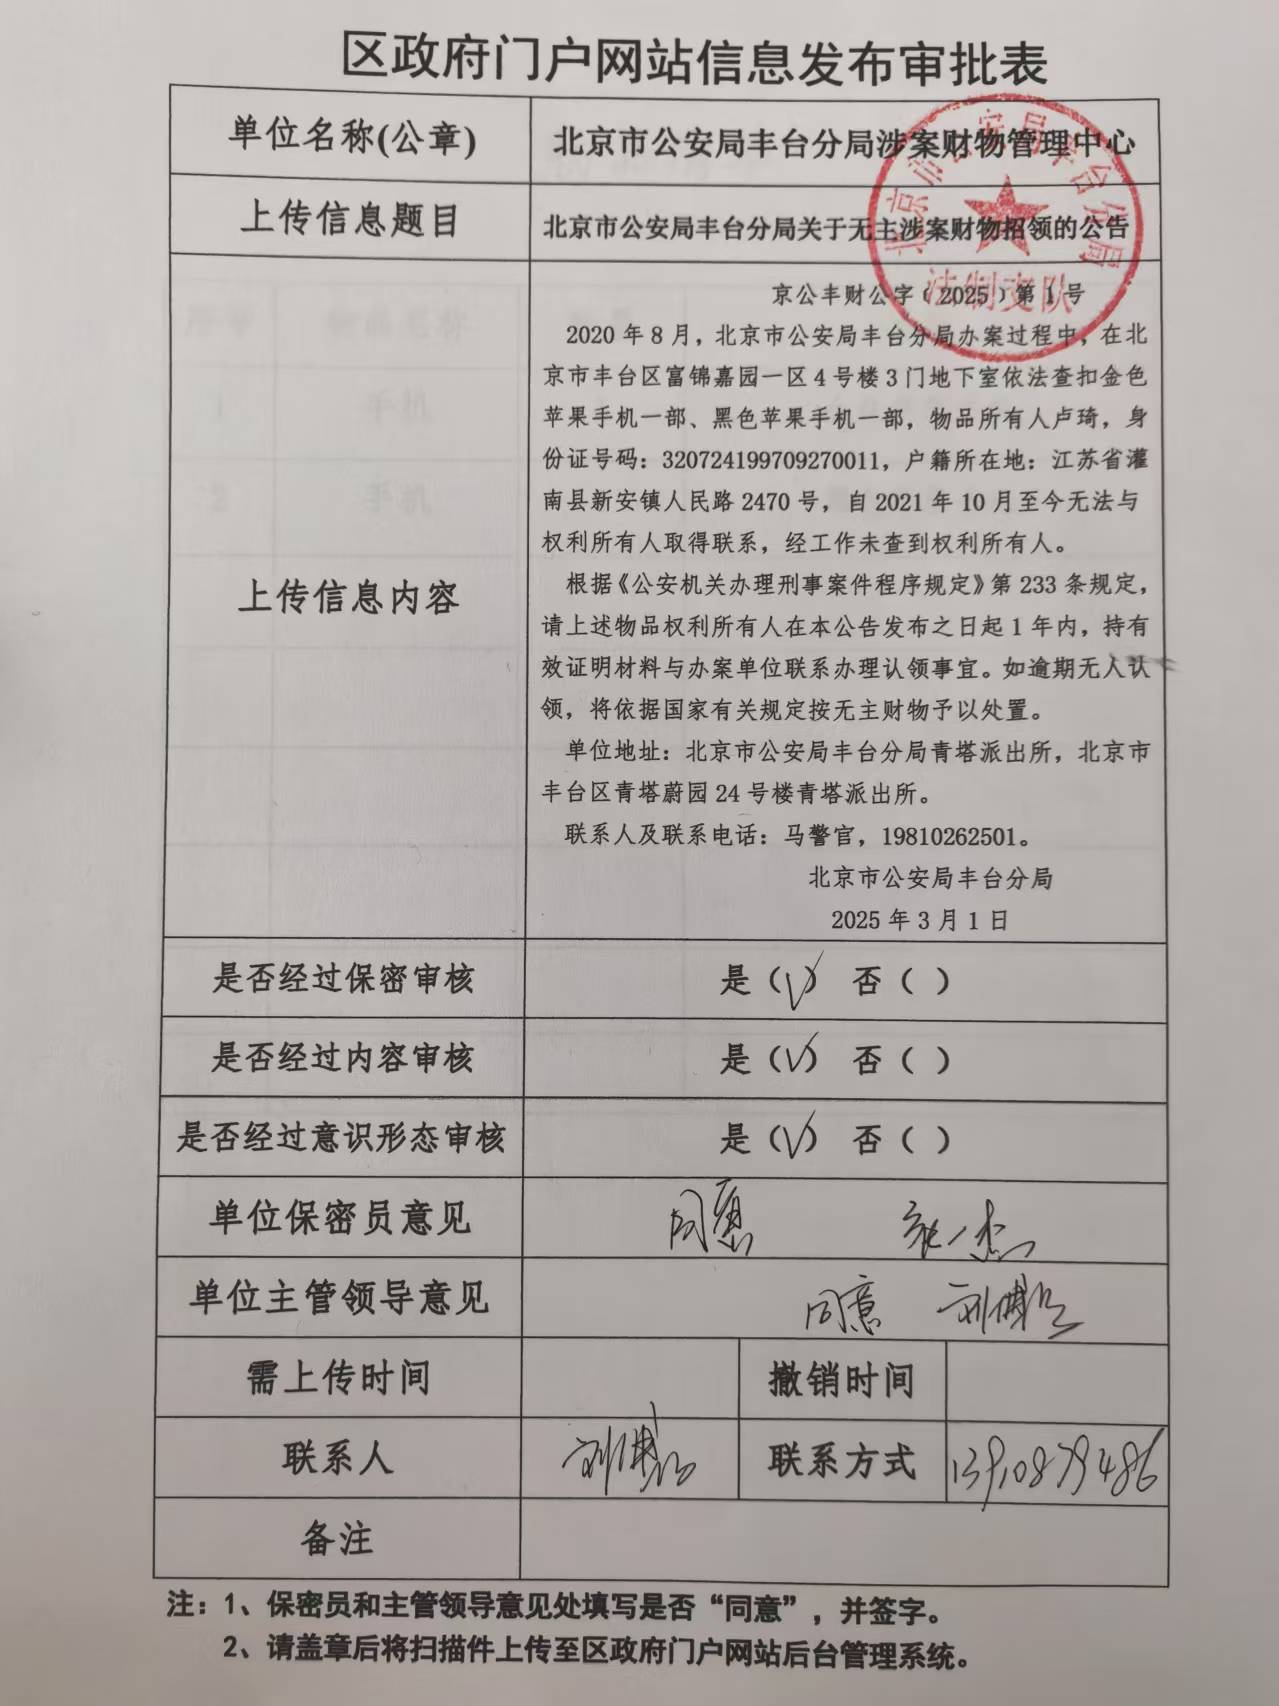 区政府门户网站信息发布审批表
单位名称(公章) 北京市公安局丰台分局涉案财物管理中心
上传信息题目 北京市公安局丰台分局关于无主涉案财物招领的公告
北京市公安局丰台分局
法制支队
上传信息内容
京公丰财公字﹝2025﹞第1号
2020年8月，北京市公安局丰台分局办案过程中，在北
京市丰台区富锦嘉园一区4号楼3门地下室依法查扣金色
苹果手机一部、黑色苹果手机一部，物品所有人卢琦，身
份证号码：320724199709270011，户籍所在地：江苏省灌
南县新安镇人民路2470号，自2021年10月至今无法与
权利所有人取得联系，经工作未查到权利所有人。
根据《公安机关办理刑事案件程序规定》第233条规定，
请上述物品权利所有人在本公告发布之日起1年内，持有
效证明材料与办案单位联系办理认领事宜。如逾期无人认
领，将依据国家有关规定按无主财物予以处置。
单位地址：北京市公安局丰台分局青塔派出所，北京市
丰台区青塔蔚园24号楼青塔派出所。
联系人及联系电话：马警官，19810262501。
北京市公安局丰台分局
2025年3月1日
是否经过保密审核 是（√） 否（ ）
是否经过内容审核 是（√） 否（ ）
是否经过意识形态审核 是（√） 否（ ）
单位保密员意见 同意
单位主管领导意见 同意
需上传时间 撤销时间
联系人 联系方式 13910879486
备注
注：1、保密员和主管领导意见处填写是否“同意”，并签字。
2、请盖章后将扫描件上传至区政府门户网站后台管理系统。